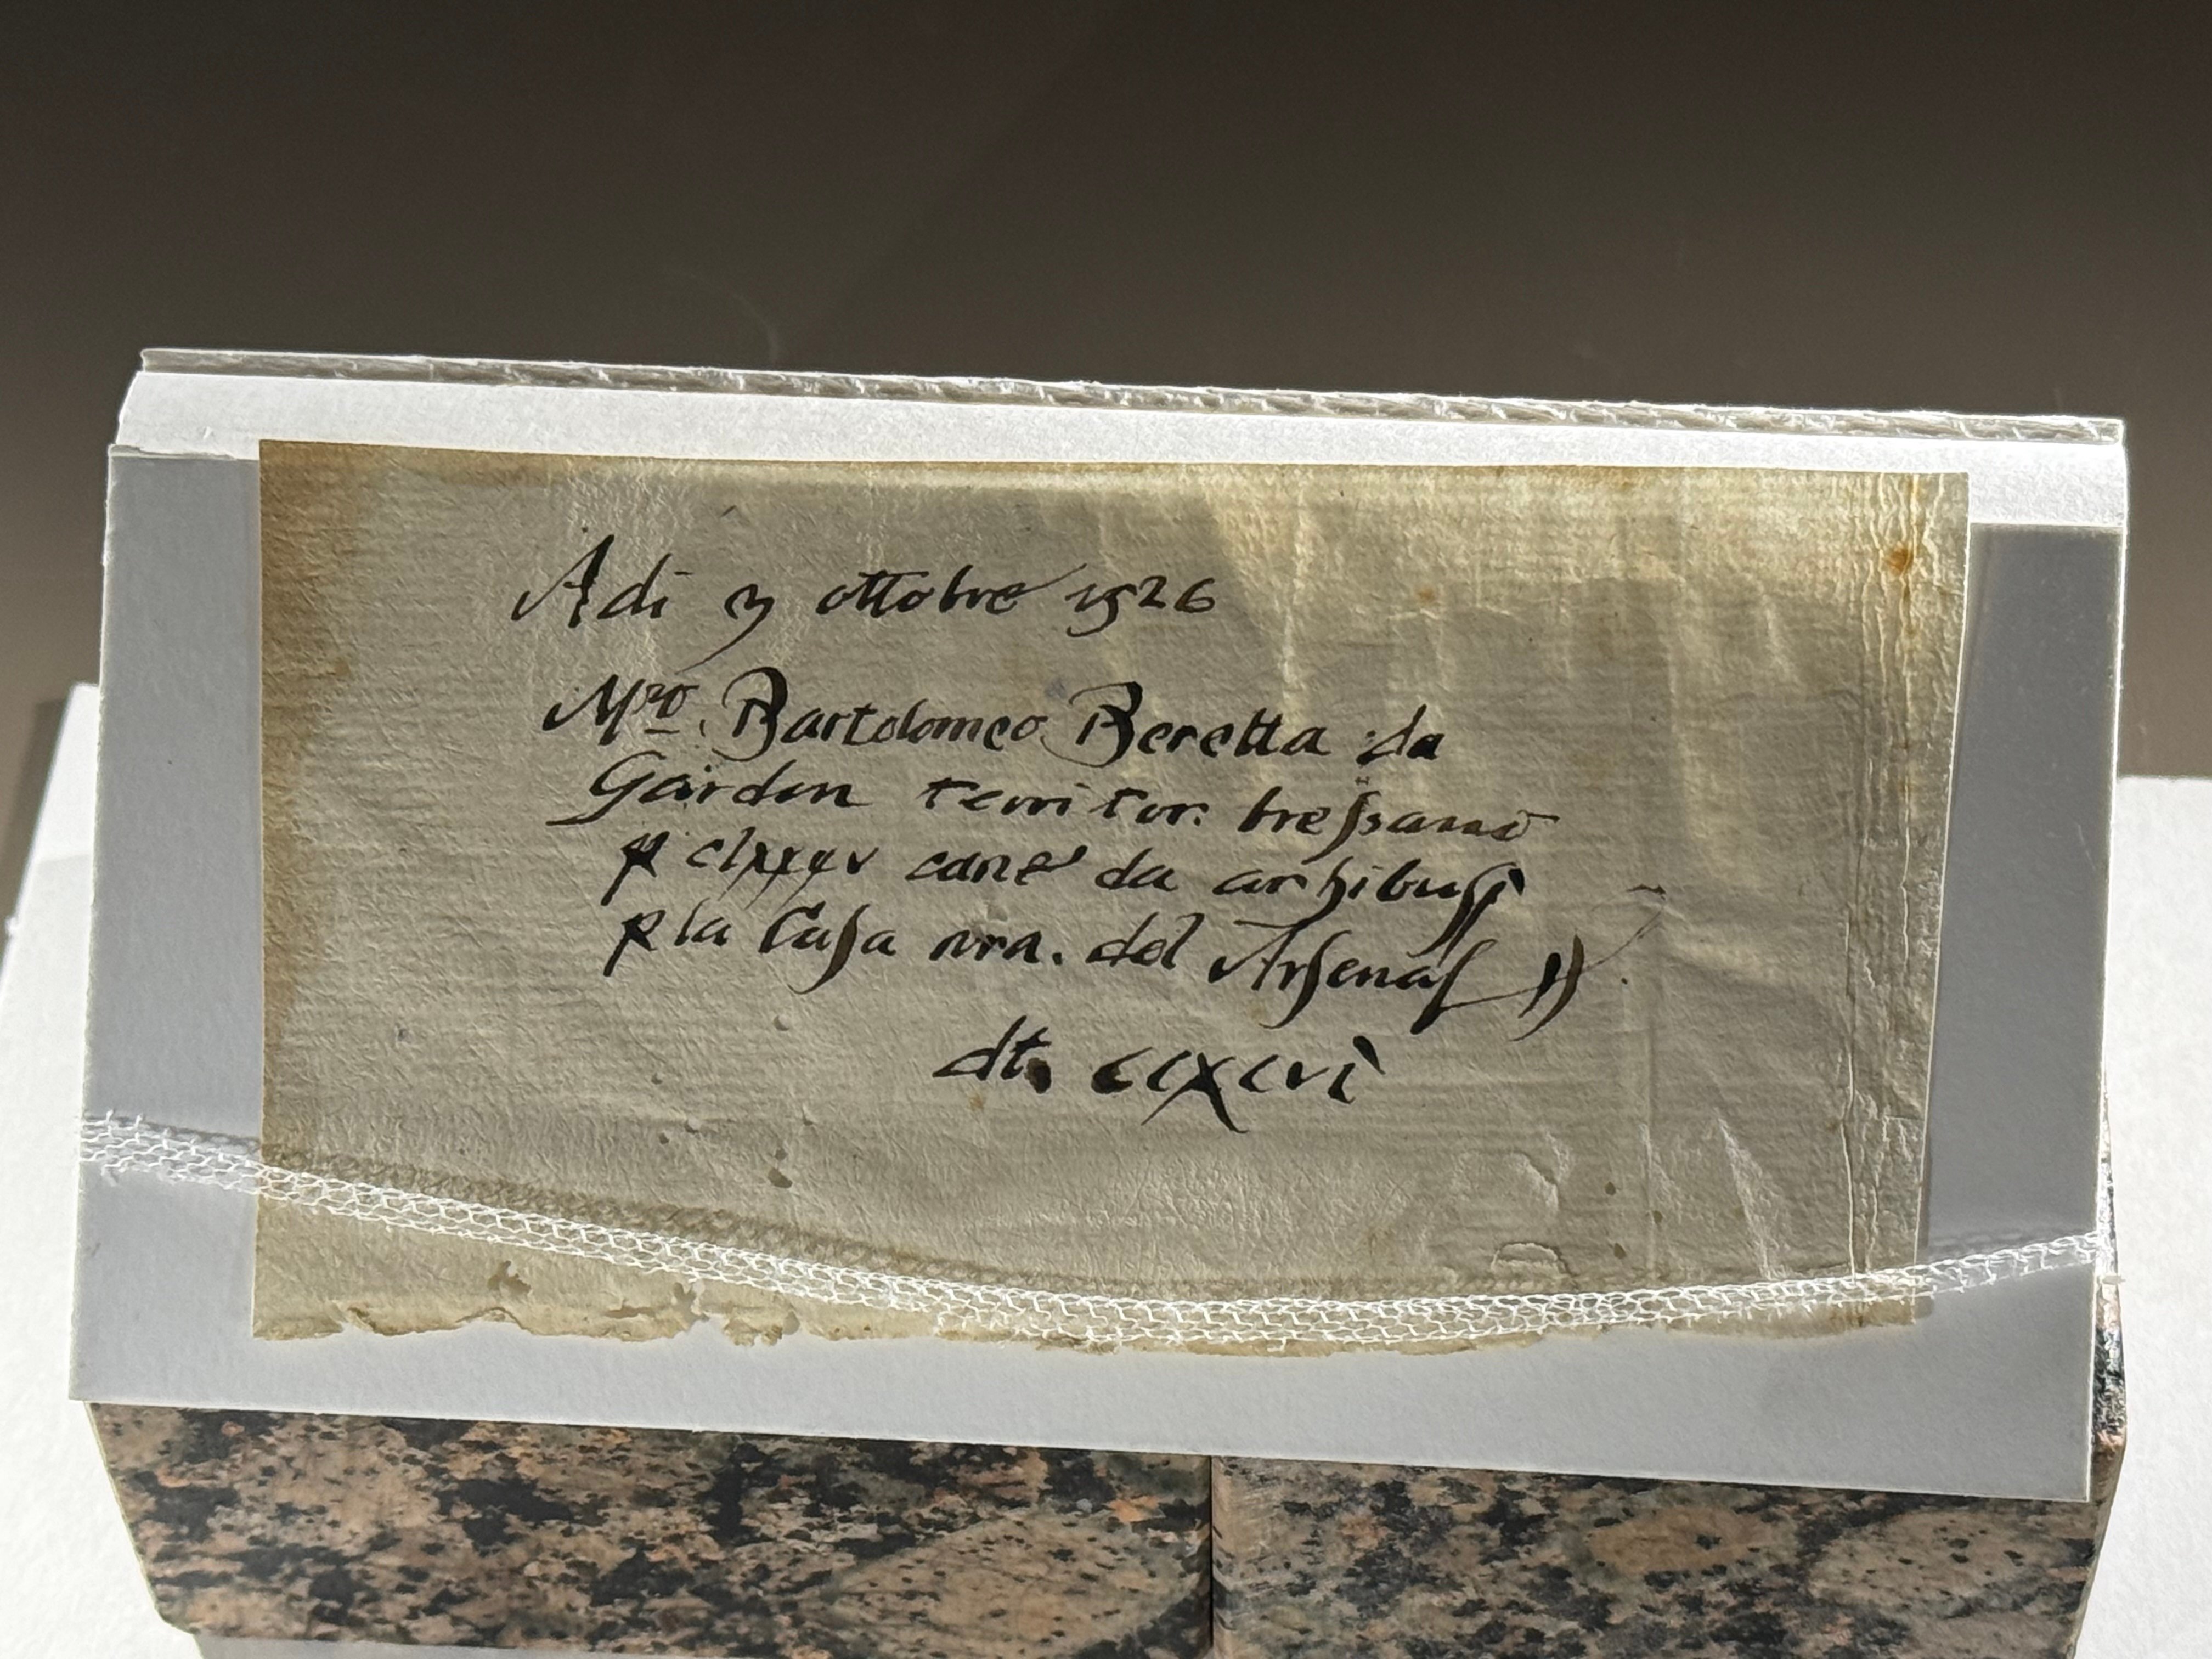 Adi 3 ottobre 1526
Mro. Bartolomeo Beretta da
Gardon territor: bressano
p clxxxv cane da arhibusi
p la Casa nra. del Arsenal
dt. cclxcvi